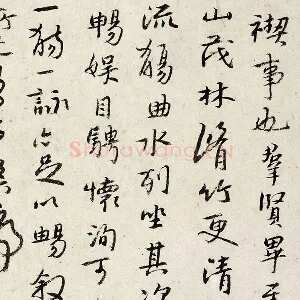 禊事也羣賢畢至
山茂林脩竹更清
流觴曲水列坐其次
暢娛目騁懷洵可
一觴一詠亦足以暢叙